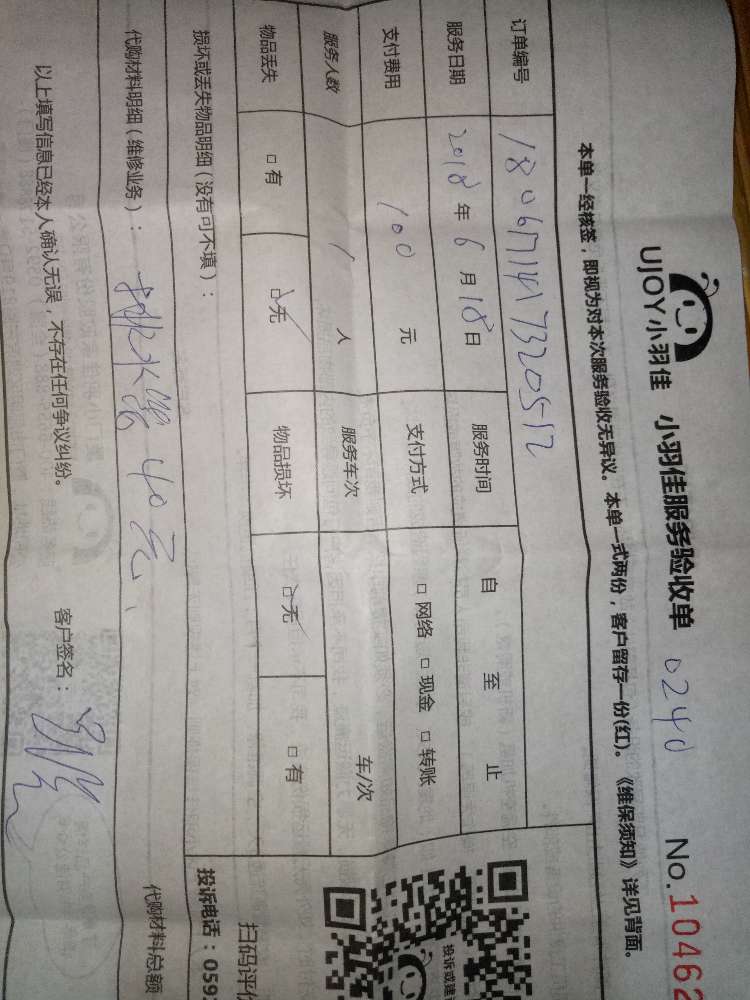 UJOY小羽佳 小羽佳服务验收单 0240 No.10462
本单一经核签，即视为对本次服务验收无异议。本单一式两份，客户留存一份(红)。《维保须知》详见背面。
订单编号 1806171417320512
服务日期 2018年6月18日 服务时间 自 至 止
支付费用 100 元 支付方式 □网络 □现金 □转账
服务人数 1 人 服务车次 车/次
物品丢失 □有 □无 物品损坏 □无 □有
损坏或丢失物品明细（没有可不填）：
代购材料明细（维修业务）： 排水器 40元、 代购材料总额
以上填写信息已经本人确认无误，不存在任何争议纠纷。 客户签名：
投诉或建
扫码评价
投诉电话：059